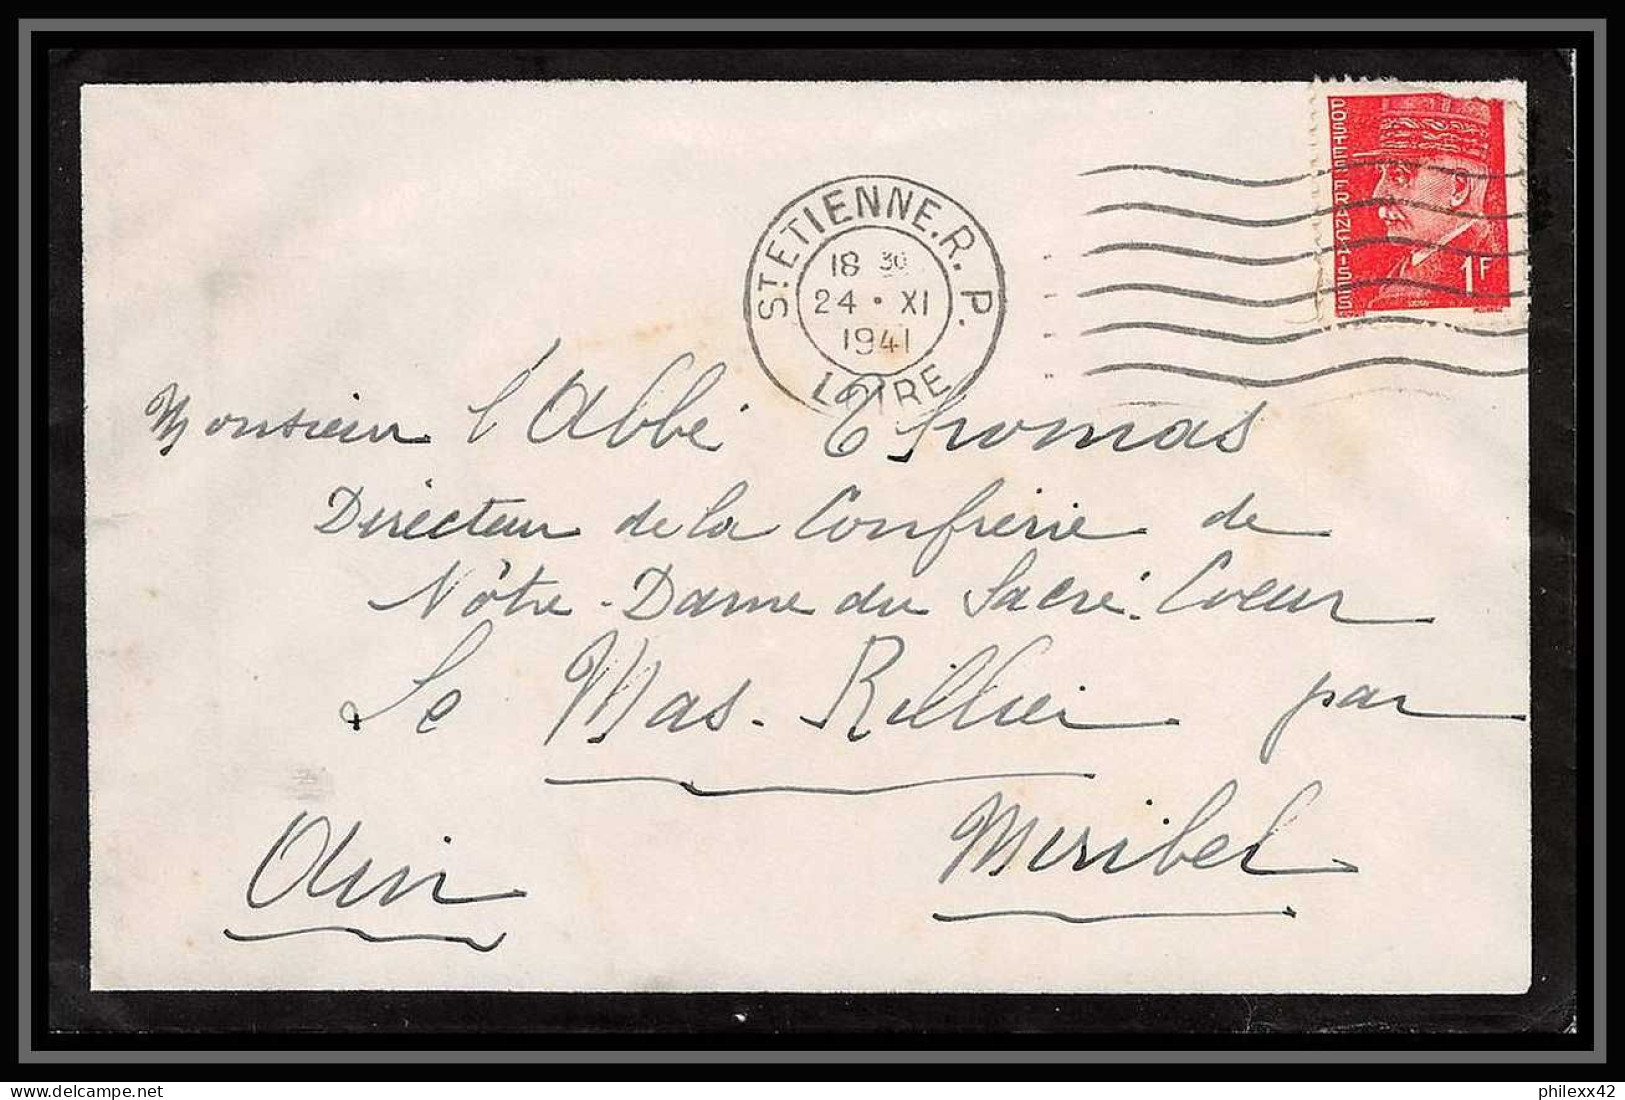 POSTES FRANÇAISES
1F
ST ETIENNE.R.P.
18 30
24 • XI
1941
LOIRE
Monsieur l'Abbé Thomas
Directeur de la Confrérie de
Nôtre-Dame du Sacré-Coeur
Le Mas-Rillier par
Miribel
Ain
www.delcampe.net
philexx42